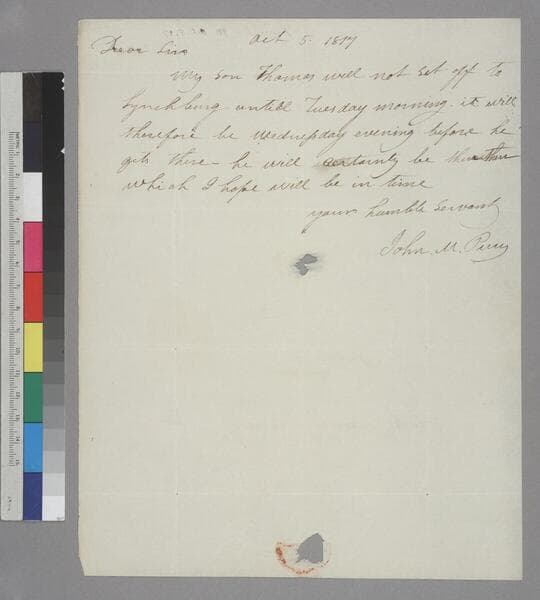 Oct 5. 1817
Dear Sire
My son Thomas will not set off to
Lynchburg untill Tuesday morning. it will
therefore be Wednesday evening before he
gets there – he will certainty be there then
which I hope will be in time
your humble Servant
John M. Perry